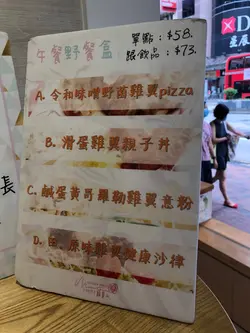 午餐野餐盒
單點：$58.
跟飲品：$73.
A. 令和味噌野菌雞翼pizza
B. 滑蛋雞翼親子丼
C. 鹹蛋黃哥羅勒雞翼意粉
原味雞翼健康沙律
長
D